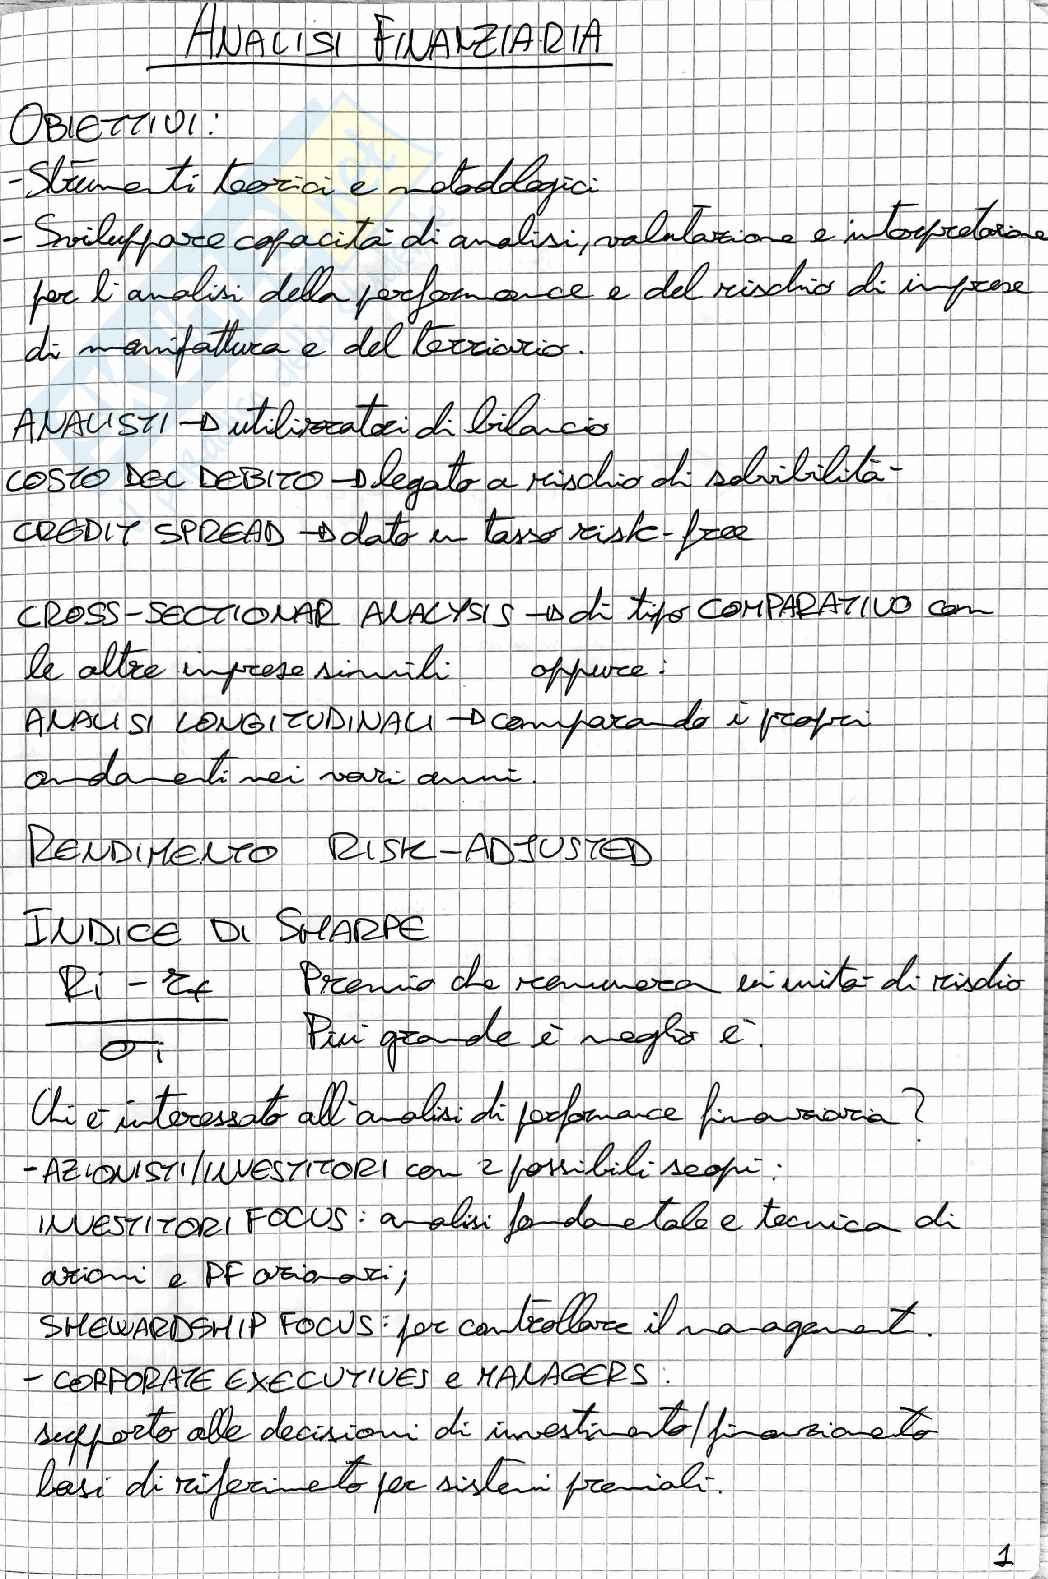 ANALISI FINANZIARIA
OBIETTIVI:
- Strumenti teorici e metodologici
- Sviluppare capacità di analisi, valutazione e interpretazione
per l'analisi della performance e del rischio di imprese
di manifattura e del terziario.
ANALISTI → utilizzatori di bilancio
COSTO DEL DEBITO → legato a rischio di solvibilità
CREDIT SPREAD → dato un tasso risk-free
CROSS-SECTIONAR ANALYSIS → di tipo COMPARATIVO con
le altre imprese simili oppure:
ANALISI LONGITUDINALI → comparando i propri
andamenti nei vari anni.
RENDIMENTO RISK-ADJUSTED
INDICE DI SHARPE
Ri - rf Premio che remunera un'unità di rischio
σi Più grande è meglio è.
Chi è interessato all'analisi di performance finanziaria?
- AZIONISTI/INVESTITORI con 2 possibili scopi:
INVESTITORI FOCUS: analisi fondamentale e tecnica di
azioni e PF azionari;
SHEWARDSHIP FOCUS: per controllare il management.
- CORPORATE EXECUTIVES e MANAGERS:
supporto alle decisioni di investimento/finanziamento
basi di riferimento per sistemi premiali.
1